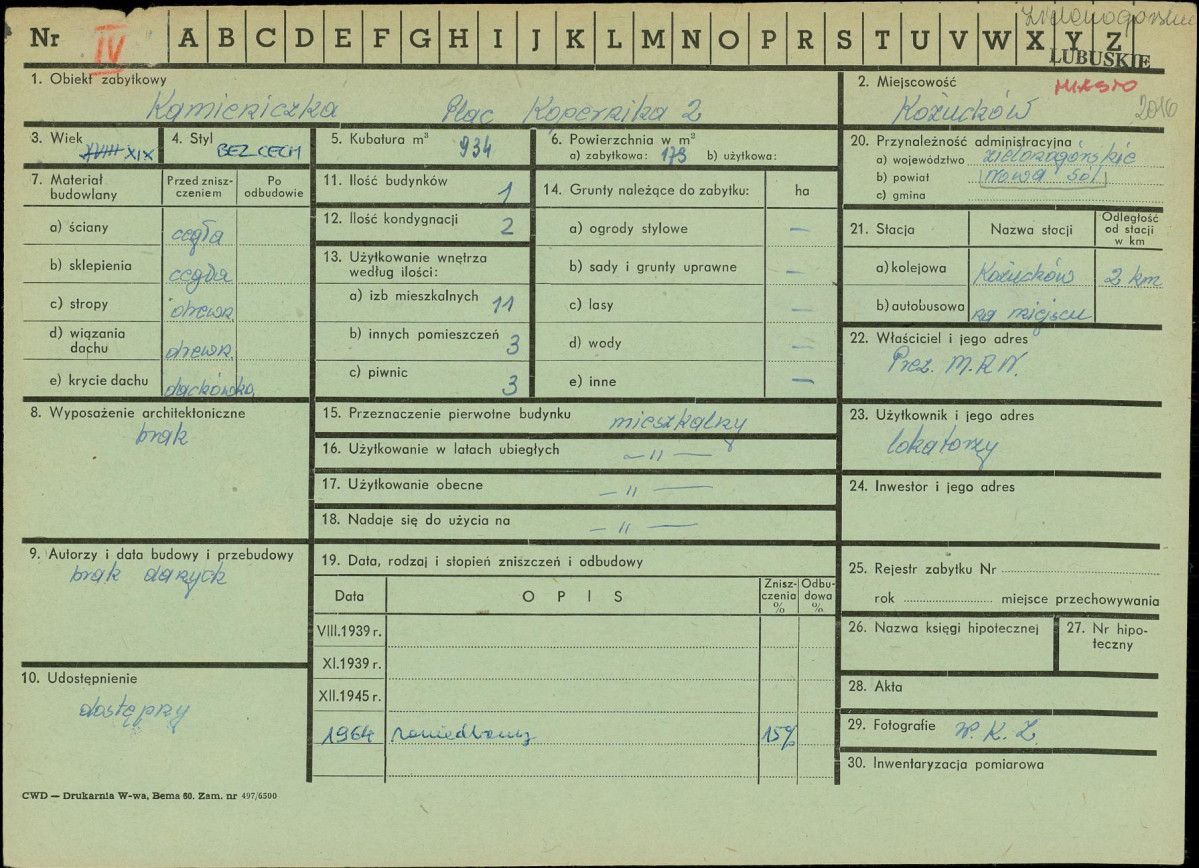 Zielonogórskie
Nr IV A B C D E F G H I J K L M N O P R S T U V W X Y Z
LUBUSKIE
1. Obiekt zabytkowy
Kamieniczka Plac Kopernika 2
2. Miejscowość MIASTO
Kożuchów 2010
3. Wiek XVIII XIX
4. Styl BEZ CECH
5. Kubatura m³ 934
6. Powierzchnia w m²
a) zabytkowa: 173 b) użytkowa:
7. Materiał budowlany
Przed zniszczeniem
Po odbudowie
a) ściany cegła
b) sklepienia cegła
c) stropy drewn.
d) wiązania dachu drewn.
e) krycie dachu dachówka
8. Wyposażenie architektoniczne
brak
9. Autorzy i data budowy i przebudowy
brak danych
10. Udostępnienie
dostępny
11. Ilość budynków 1
12. Ilość kondygnacji 2
13. Użytkowanie wnętrza
według ilości:
a) izb mieszkalnych 11
b) innych pomieszczeń 3
c) piwnic 3
14. Grunty należące do zabytku: ha
a) ogrody stylowe —
b) sady i grunty uprawne —
c) lasy —
d) wody —
e) inne —
15. Przeznaczenie pierwotne budynku mieszkalny
16. Użytkowanie w latach ubiegłych —"—
17. Użytkowanie obecne —"—
18. Nadaje się do użycia na —"—
19. Data, rodzaj i stopień zniszczeń i odbudowy
Data OPIS Zniszczenia % Odbudowa %
VIII.1939 r.
XI.1939 r.
XII.1945 r.
1964 zaniedbany 15%
20. Przynależność administracyjna
a) województwo zielonogórskie
b) powiat Nowa Sól
c) gmina
21. Stacja Nazwa stacji Odległość od stacji w km
a) kolejowa Kożuchów 2 km
b) autobusowa na miejscu
22. Właściciel i jego adres
Prez. M.R.N.
23. Użytkownik i jego adres
lokatorzy
24. Inwestor i jego adres
25. Rejestr zabytku Nr
rok miejsce przechowywania
26. Nazwa księgi hipotecznej
27. Nr hipoteczny
28. Akta
29. Fotografie W.K.Z.
30. Inwentaryzacja pomiarowa
CWD — Drukarnia W-wa, Bema 60. Zam. nr 497/6500